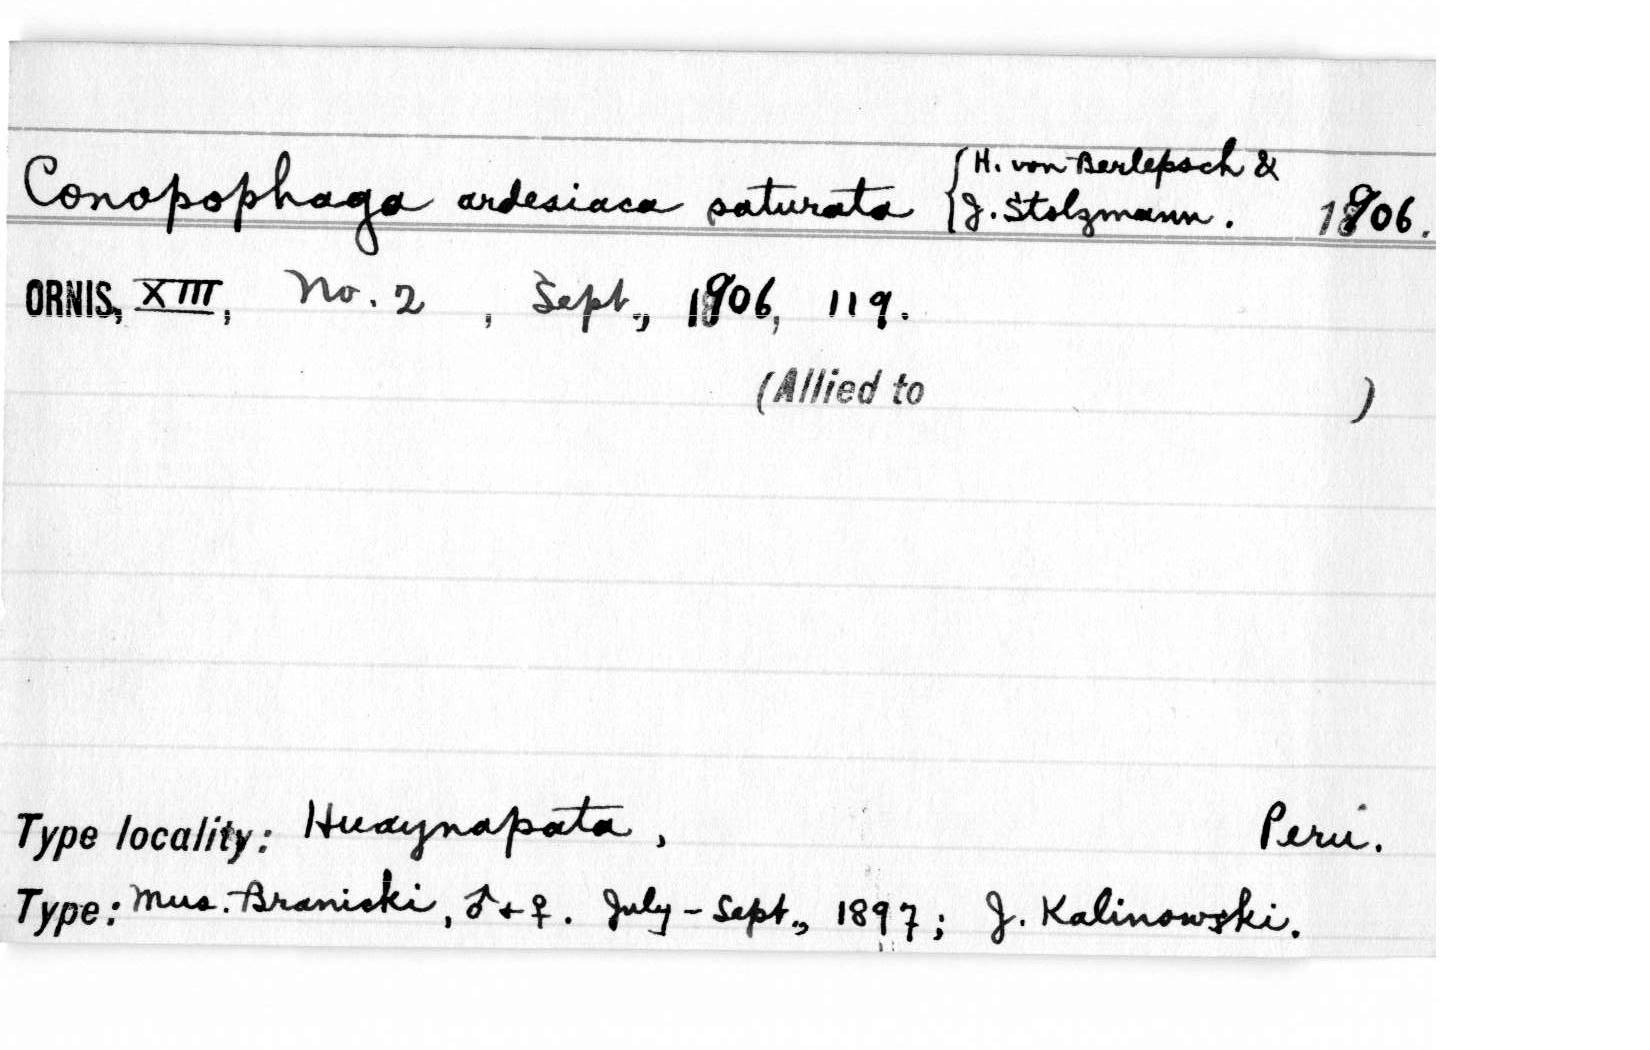 Conopophaga ardesiaca saturata { H. von Berlepsch &
J. Stolzmann. 1906.
ORNIS, XIII, No. 2, Sept., 1906, 119.
(Allied to )
Type locality: Huaynapata, Peru.
Type: Mus. Braniski, ♂ + ♀. July - Sept., 1897; J. Kalinowski.